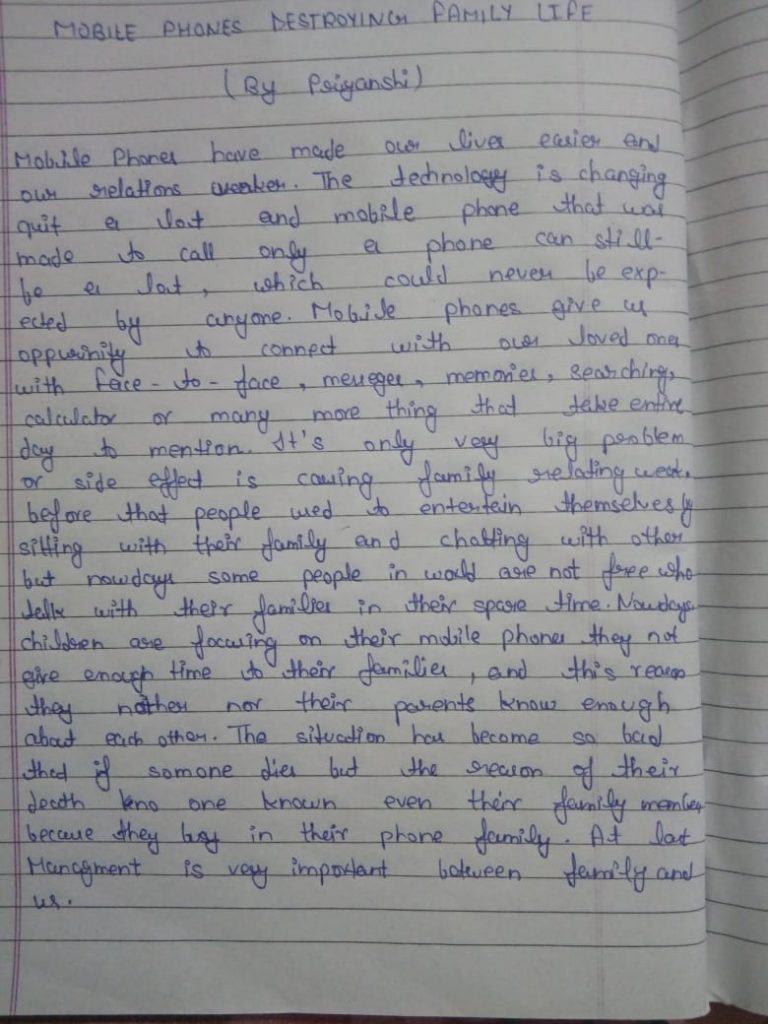 MOBILE PHONES DESTROYING FAMILY LIFE
(By Priyanshi)
Mobile Phones have made our lives easier and
our relations weaker. The technology is changing
quit a lot and mobile phone that was
made to call only a phone can still-
be a lot, which could never be exp-
ected by anyone. Mobile phones give us
oppurinity to connect with our loved ones
with face-to-face, messeges, memories, searching,
calculator or many more thing that take entire
day to mention. It's only very big problem
or side effect is causing family relating weak.
before that people used to entertain themselves by
sitting with their family and chatting with other
but nowdays some people in world are not free who
talk with their families in their spare time. Nowdays
children are focusing on their mobile phones they not
give enough time to their families, and this reason
they nother nor their parents know enough
about each other. The situation has become so bad
that if somone dies but the reason of their
death kno one known even their family member
because they busy in their phone family. At last
Managment is very important between family and
us.